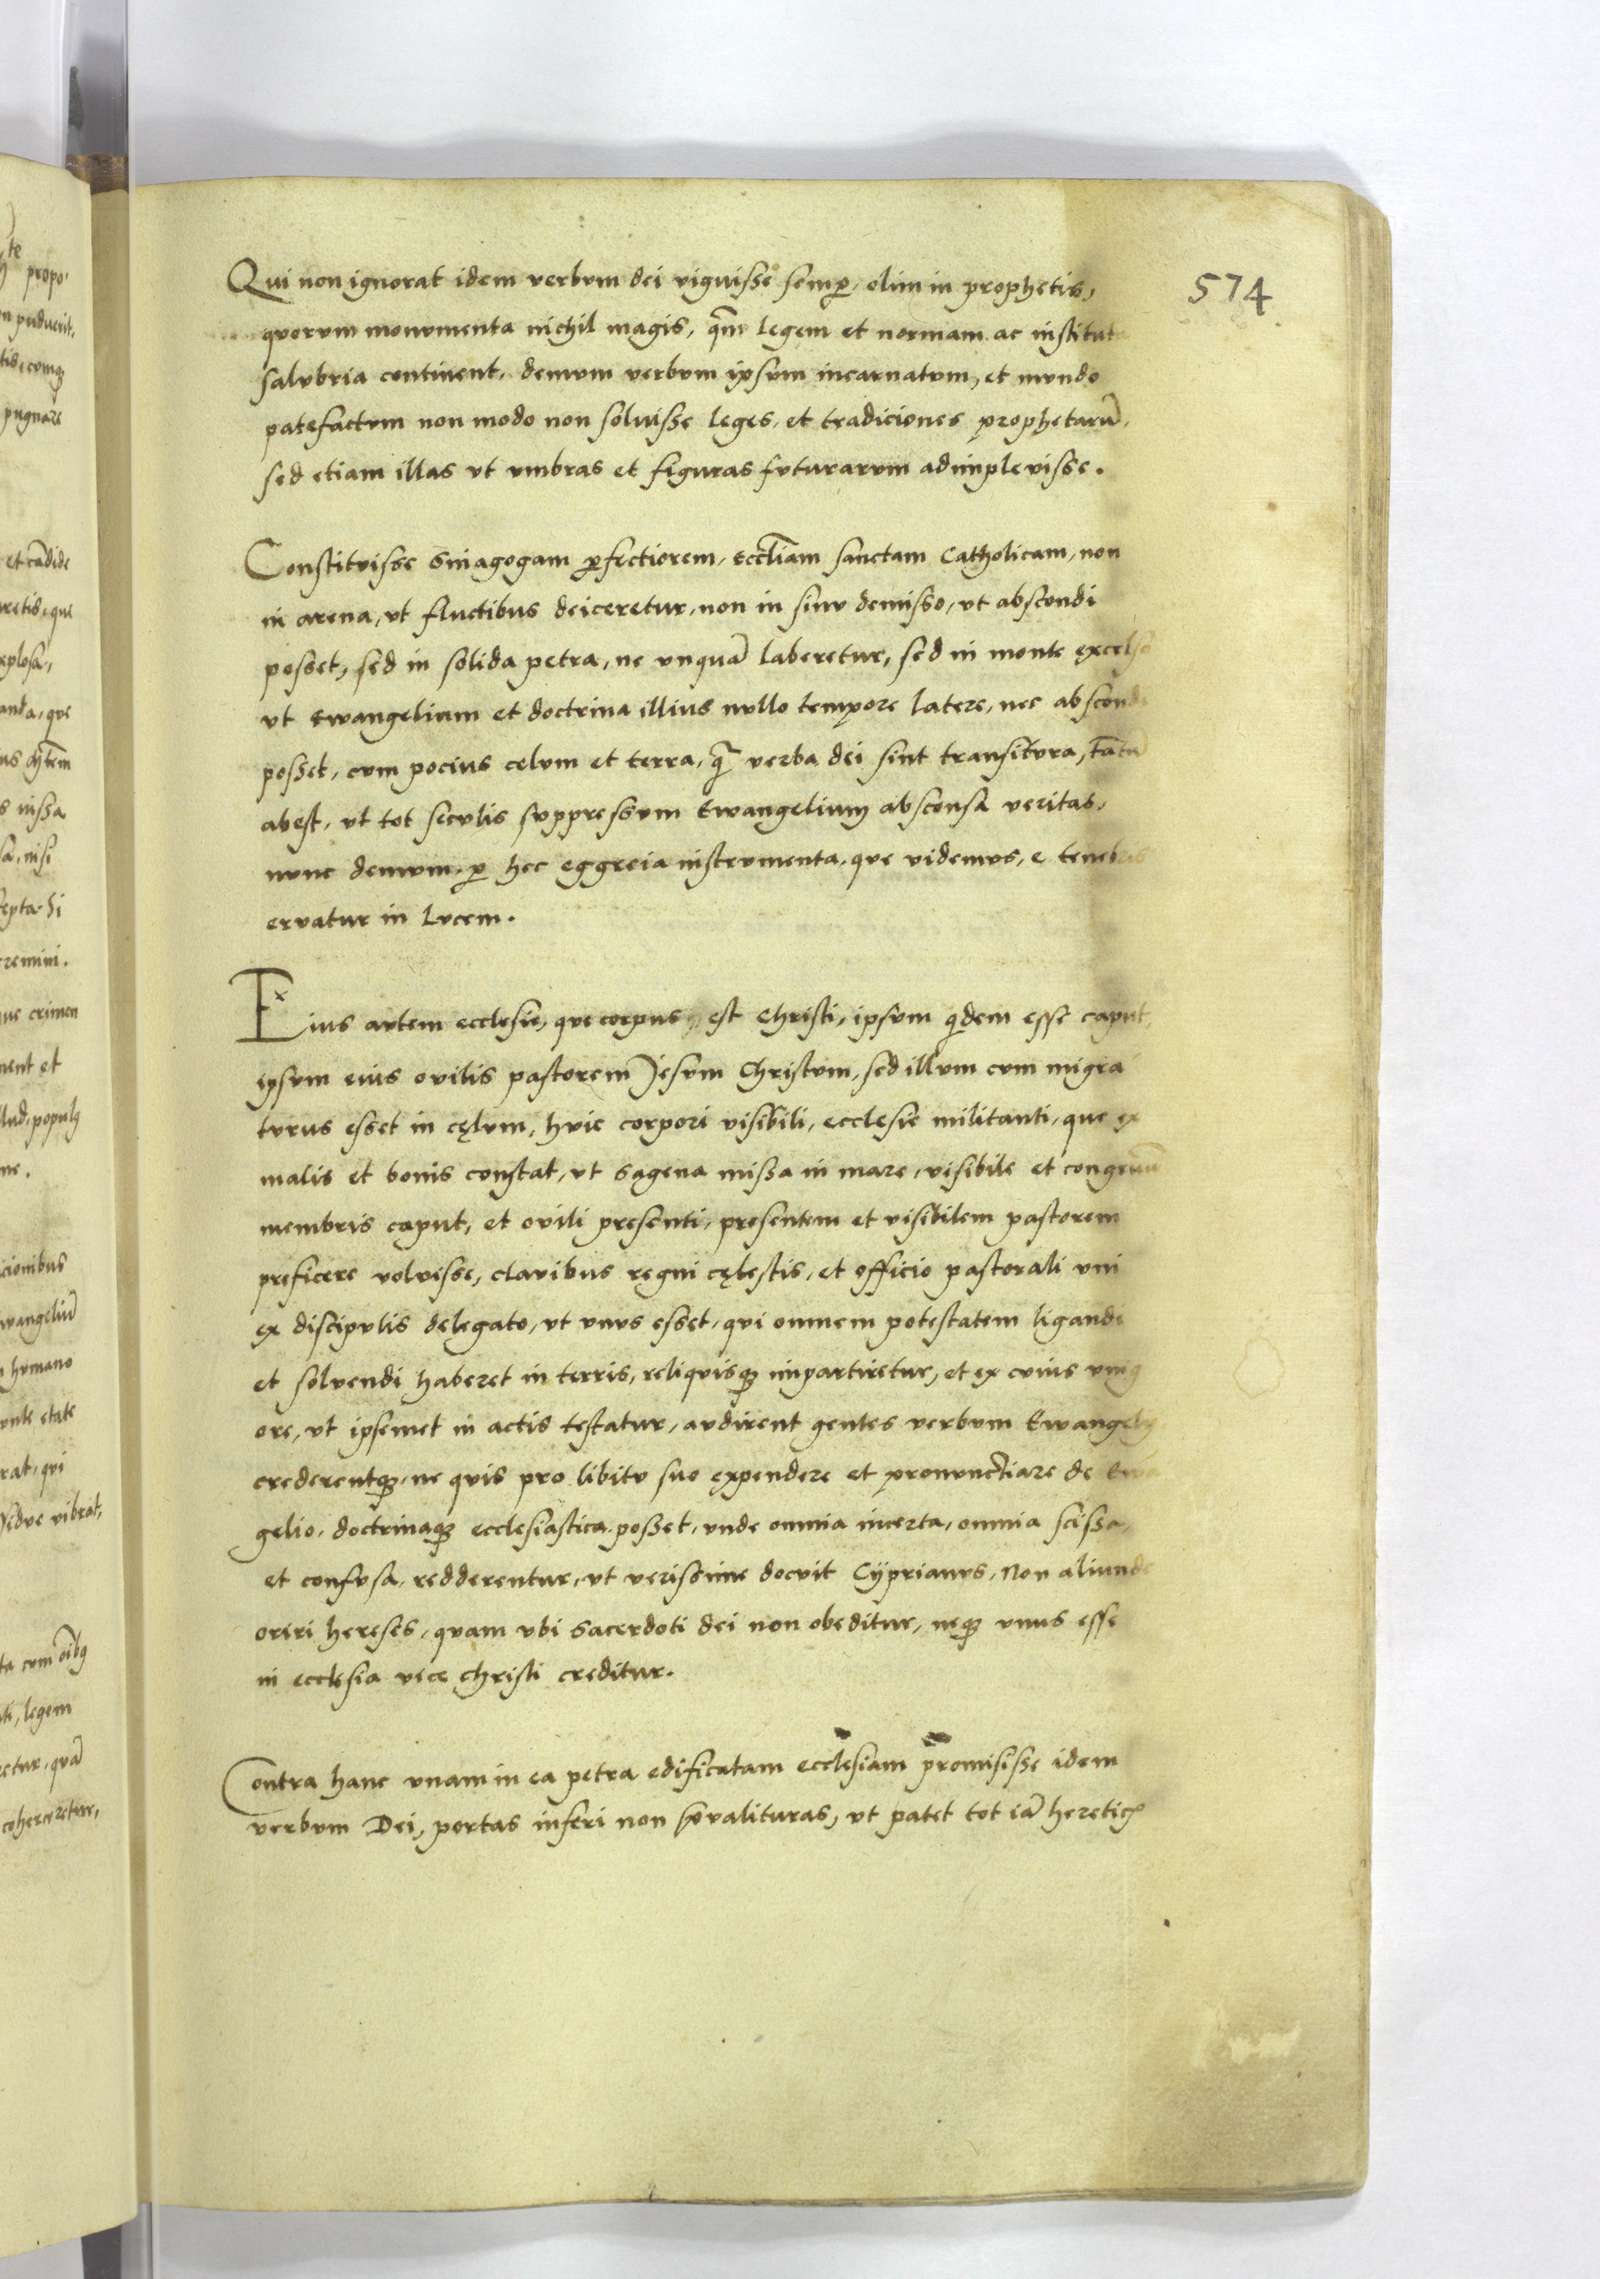 574
Qui non ignorat idem verbvm dei viguisse semp, olim in prophetis,
qvorvm monvmenta nichil magis, qm legem et normam ac institut
salvbria continent, demvm verbvm ipsvm incarnatvm, et mvndo
patefactvm non modo non solvisse leges, et tradiciones prophetarū,
sed etiam illas vt vmbras et figuras fvturarvm adimplevisse.
Constitvisse sinagogam pfectiorem, eccliam sanctam Catholicam, non
in arena, vt fluctibus deiceretur, non in sinv demisso, vt abscondi
posset, sed in solida petra, ne vnquā laberetur, sed in monte excelso
vt Ewangelium et doctrina illius nvllo tempore latere, nec abscondi
posset, cvm pocius celvm et terra, q̄ verba dei sint transitvra, tātū
abest, vt tot secvlis svppressvm Ewangelium absconsa veritas,
nvnc demvm, p hec eggreia instrvmenta, que videmvs, e tenebris
ervatur in lvcem.
Eius avtem ecclesie, que corpus est Christi, ipsvm qdem esse caput,
ipsvm eius ovilis pastorem Jesvm Christvm, sed illvm cvm migra
tvrus esset in cęlvm, hvic corpori visibili, ecclesie militanti, que ex
malis et bonis constat, vt sagena missa in mare, visibile et congruū
membris caput, et ovili presenti, presentem et visibilem pastorem
preficere volvisse, clavibus regni cęlestis, et officio pastorali vni
ex discipvlis delegato, vt vnvs esset, qvi omnem potestatem ligandi
et solvendi haberet in terris, reliqvisq impartiretur, et ex cvius vniq
ore, vt ipsemet in actis testatur, avdirent gentes verbvm Ewangely
crederentq, ne qvis pro libitv svo expendere et pronvnctiare de Ewa
gelio, doctrinaq ecclesiastica posset, vnde omnia incerta, omnia scissa,
et confvsa, redderentur, vt verissime docvit Cyprianvs, Non aliunde
oriri hereses, qvam vbi sacerdoti dei non obeditur, neq vnus esse
in ecclesia vice Christi creditur.
Contra hanc vnam in ea petra edificatam ecclesiam promisisse idem
verbvm Dei, portas inferi non pvalituras, vt patet tot iā heretic